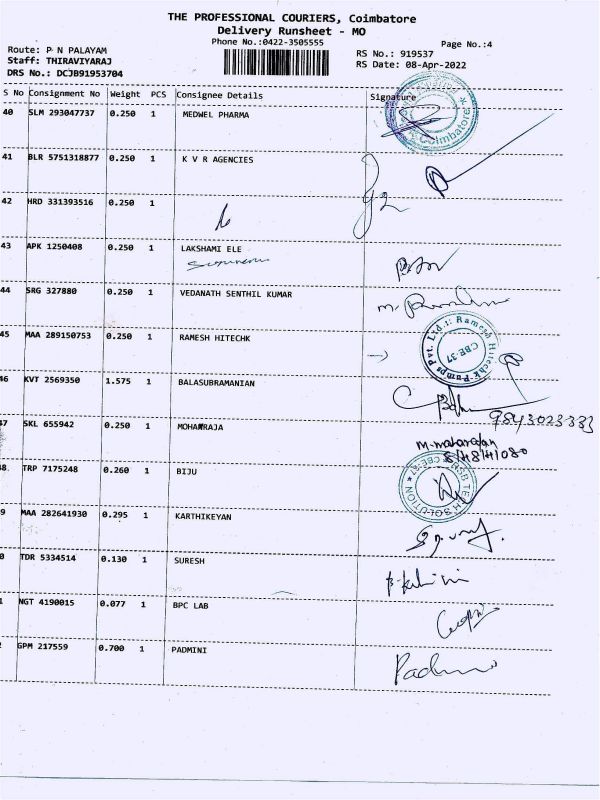 THE PROFESSIONAL COURIERS, Coimbatore
Delivery Runsheet - MO
Phone No.:0422-3505555
Page No.:4
Route: P N PALAYAM
Staff: THIRAVIYARAJ
DRS No.: DCJB91953704
RS No.: 919537
RS Date: 08-Apr-2022
S No Consignment No Weight PCS Consignee Details Signature
40 SLM 293047737 0.250 1 MEDWEL PHARMA
Coimbatore
41 BLR 5751318877 0.250 1 K V R AGENCIES
42 HRD 331393516 0.250 1
43 APK 1250408 0.250 1 LAKSHAMI ELE
44 SRG 327880 0.250 1 VEDANATH SENTHIL KUMAR
45 MAA 289150753 0.250 1 RAMESH HITECHK
Ramesh Hitechk Pumps Pvt. Ltd.,
CBE-37
46 KVT 2569350 1.575 1 BALASUBRAMANIAN
9843023333
47 SKL 655942 0.250 1 MOHANRAJA
48 TRP 7175248 0.260 1 BIJU
TECH SOLUTION
9 MAA 282641930 0.295 1 KARTHIKEYAN
0 TDR 5334514 0.130 1 SURESH
1 NGT 4190015 0.077 1 BPC LAB
GPM 217559 0.700 1 PADMINI